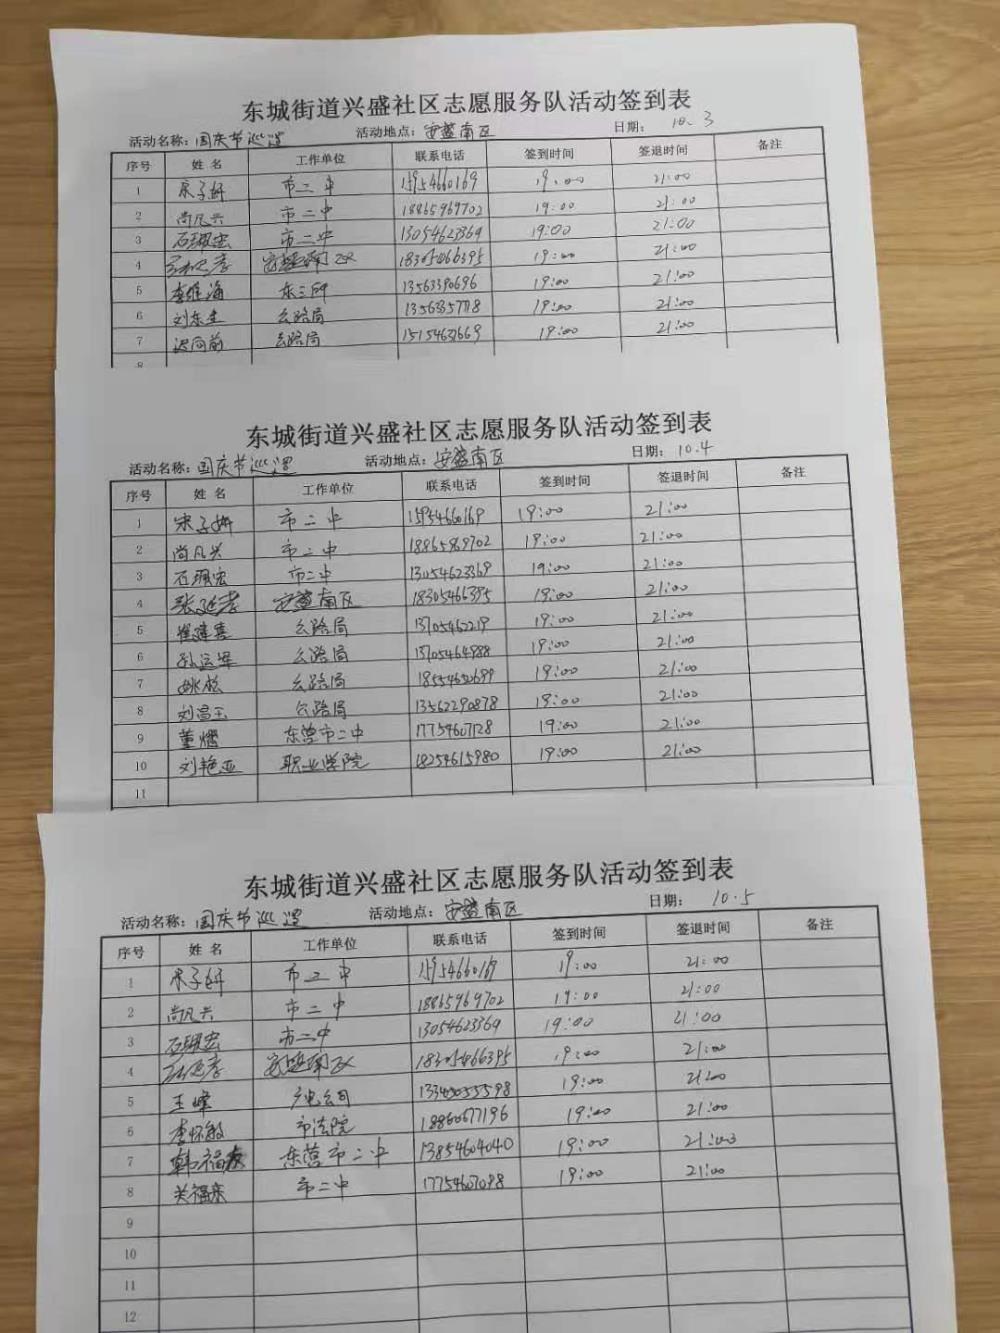 东城街道兴盛社区志愿服务队活动签到表
活动名称：国庆节巡逻 活动地点：安盛南区 日期：10.3
序号 姓名 工作单位 联系电话 签到时间 签退时间 备注
1 宋子妍 市二中 15954660169 19:00 21:00
2 尚凡兴 市二中 18865969702 19:00 21:00
3 石珮宏 市二中 13054623369 19:00 21:00
4 安盛南区 18305466395 19:00 21:00
5 李维海 13563390696 19:00 21:00
6 刘东生 公路局 19:00 21:00
7 迟向前 公路局 19:00 21:00
8
东城街道兴盛社区志愿服务队活动签到表
活动名称：国庆节巡逻 活动地点：安盛南区 日期：10.4
序号 姓名 工作单位 联系电话 签到时间 签退时间 备注
1 宋子妍 市二中 15954660169 19:00 21:00
2 尚凡兴 市二中 18865969702 19:00 21:00
3 石珮宏 市二中 13054623369 19:00 21:00
4 张延孝 安盛南区 18305466395 19:00 21:00
5 崔建喜 公路局 13705462219 19:00 21:00
6 孙运军 公路局 13705464988 19:00 21:00
7 姚松 公路局 19:00 21:00
8 刘昌玉 公路局 13562290878 19:00 21:00
9 董熠 东营市二中 17754607128 19:00 21:00
10 刘艳亚 职业学院 18254615980 19:00 21:00
11
东城街道兴盛社区志愿服务队活动签到表
活动名称：国庆节巡逻 活动地点：安盛南区 日期：10.5
序号 姓名 工作单位 联系电话 签到时间 签退时间 备注
1 宋子妍 市二中 15954660169 19:00 21:00
2 尚凡兴 市二中 18865969702 19:00 21:00
3 石珮宏 市二中 13054623369 19:00 21:00
4 安盛南区 18305466395 19:00 21:00
5 王峰 广电公司 19:00 21:00
6 李怀敏 市法院 18860677196 19:00 21:00
7 东营市二中 13854604040 19:00 21:00
8 关福东 市二中 17754607098 19:00 21:00
9
10
11
12